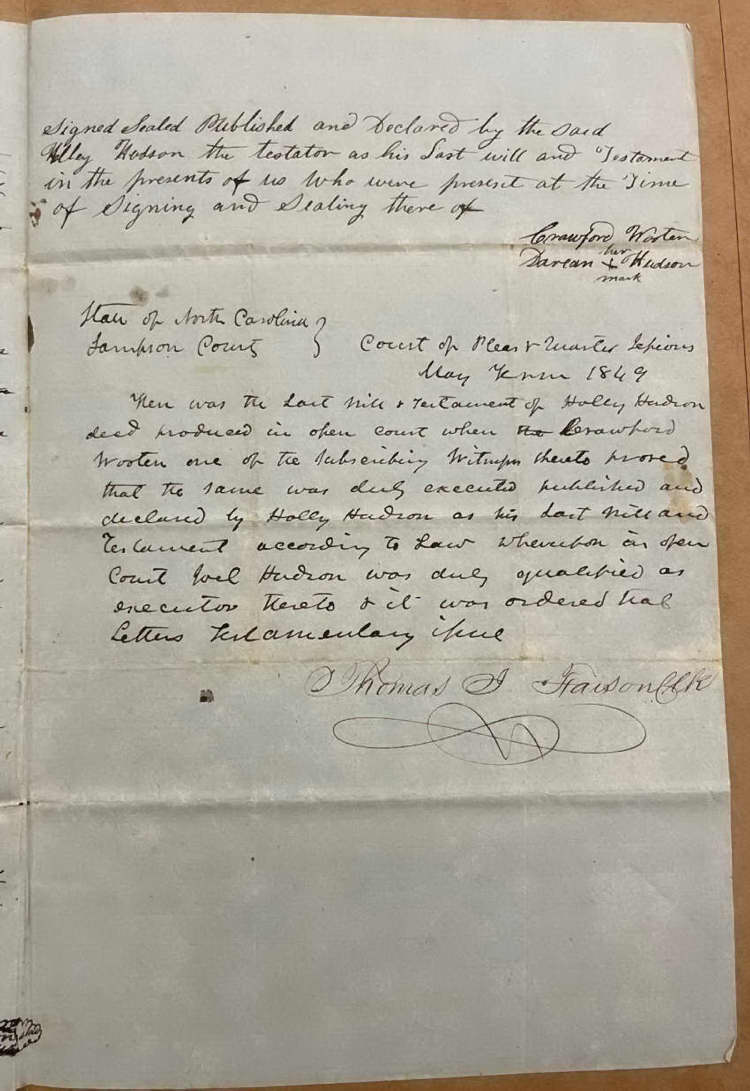 Signed Sealed Published and Declared by the said
Holley Hodson the testator as his Last will and Testament
in the presents of us Who were present at the Time
of Signing and Sealing there of
Crawford Wooten
her
Darcan + Hudson
mark
State of North Carolina
Sampson County } Court of Pleas & Quarter Sessions
May Term 1849
Then was the Last Will & Testament of Holly Hudson
decd produced in open court when Crawford
Wooten one of the Subscribing Witness thereto proved
that the same was duly executed published and
declared by Holly Hudson as his Last Will and
Testament according to Law whereupon in open
Court Joel Hudson was duly qualified as
executor thereto & it was ordered that
Letters Testamentary issue
Thomas I Faison Clk